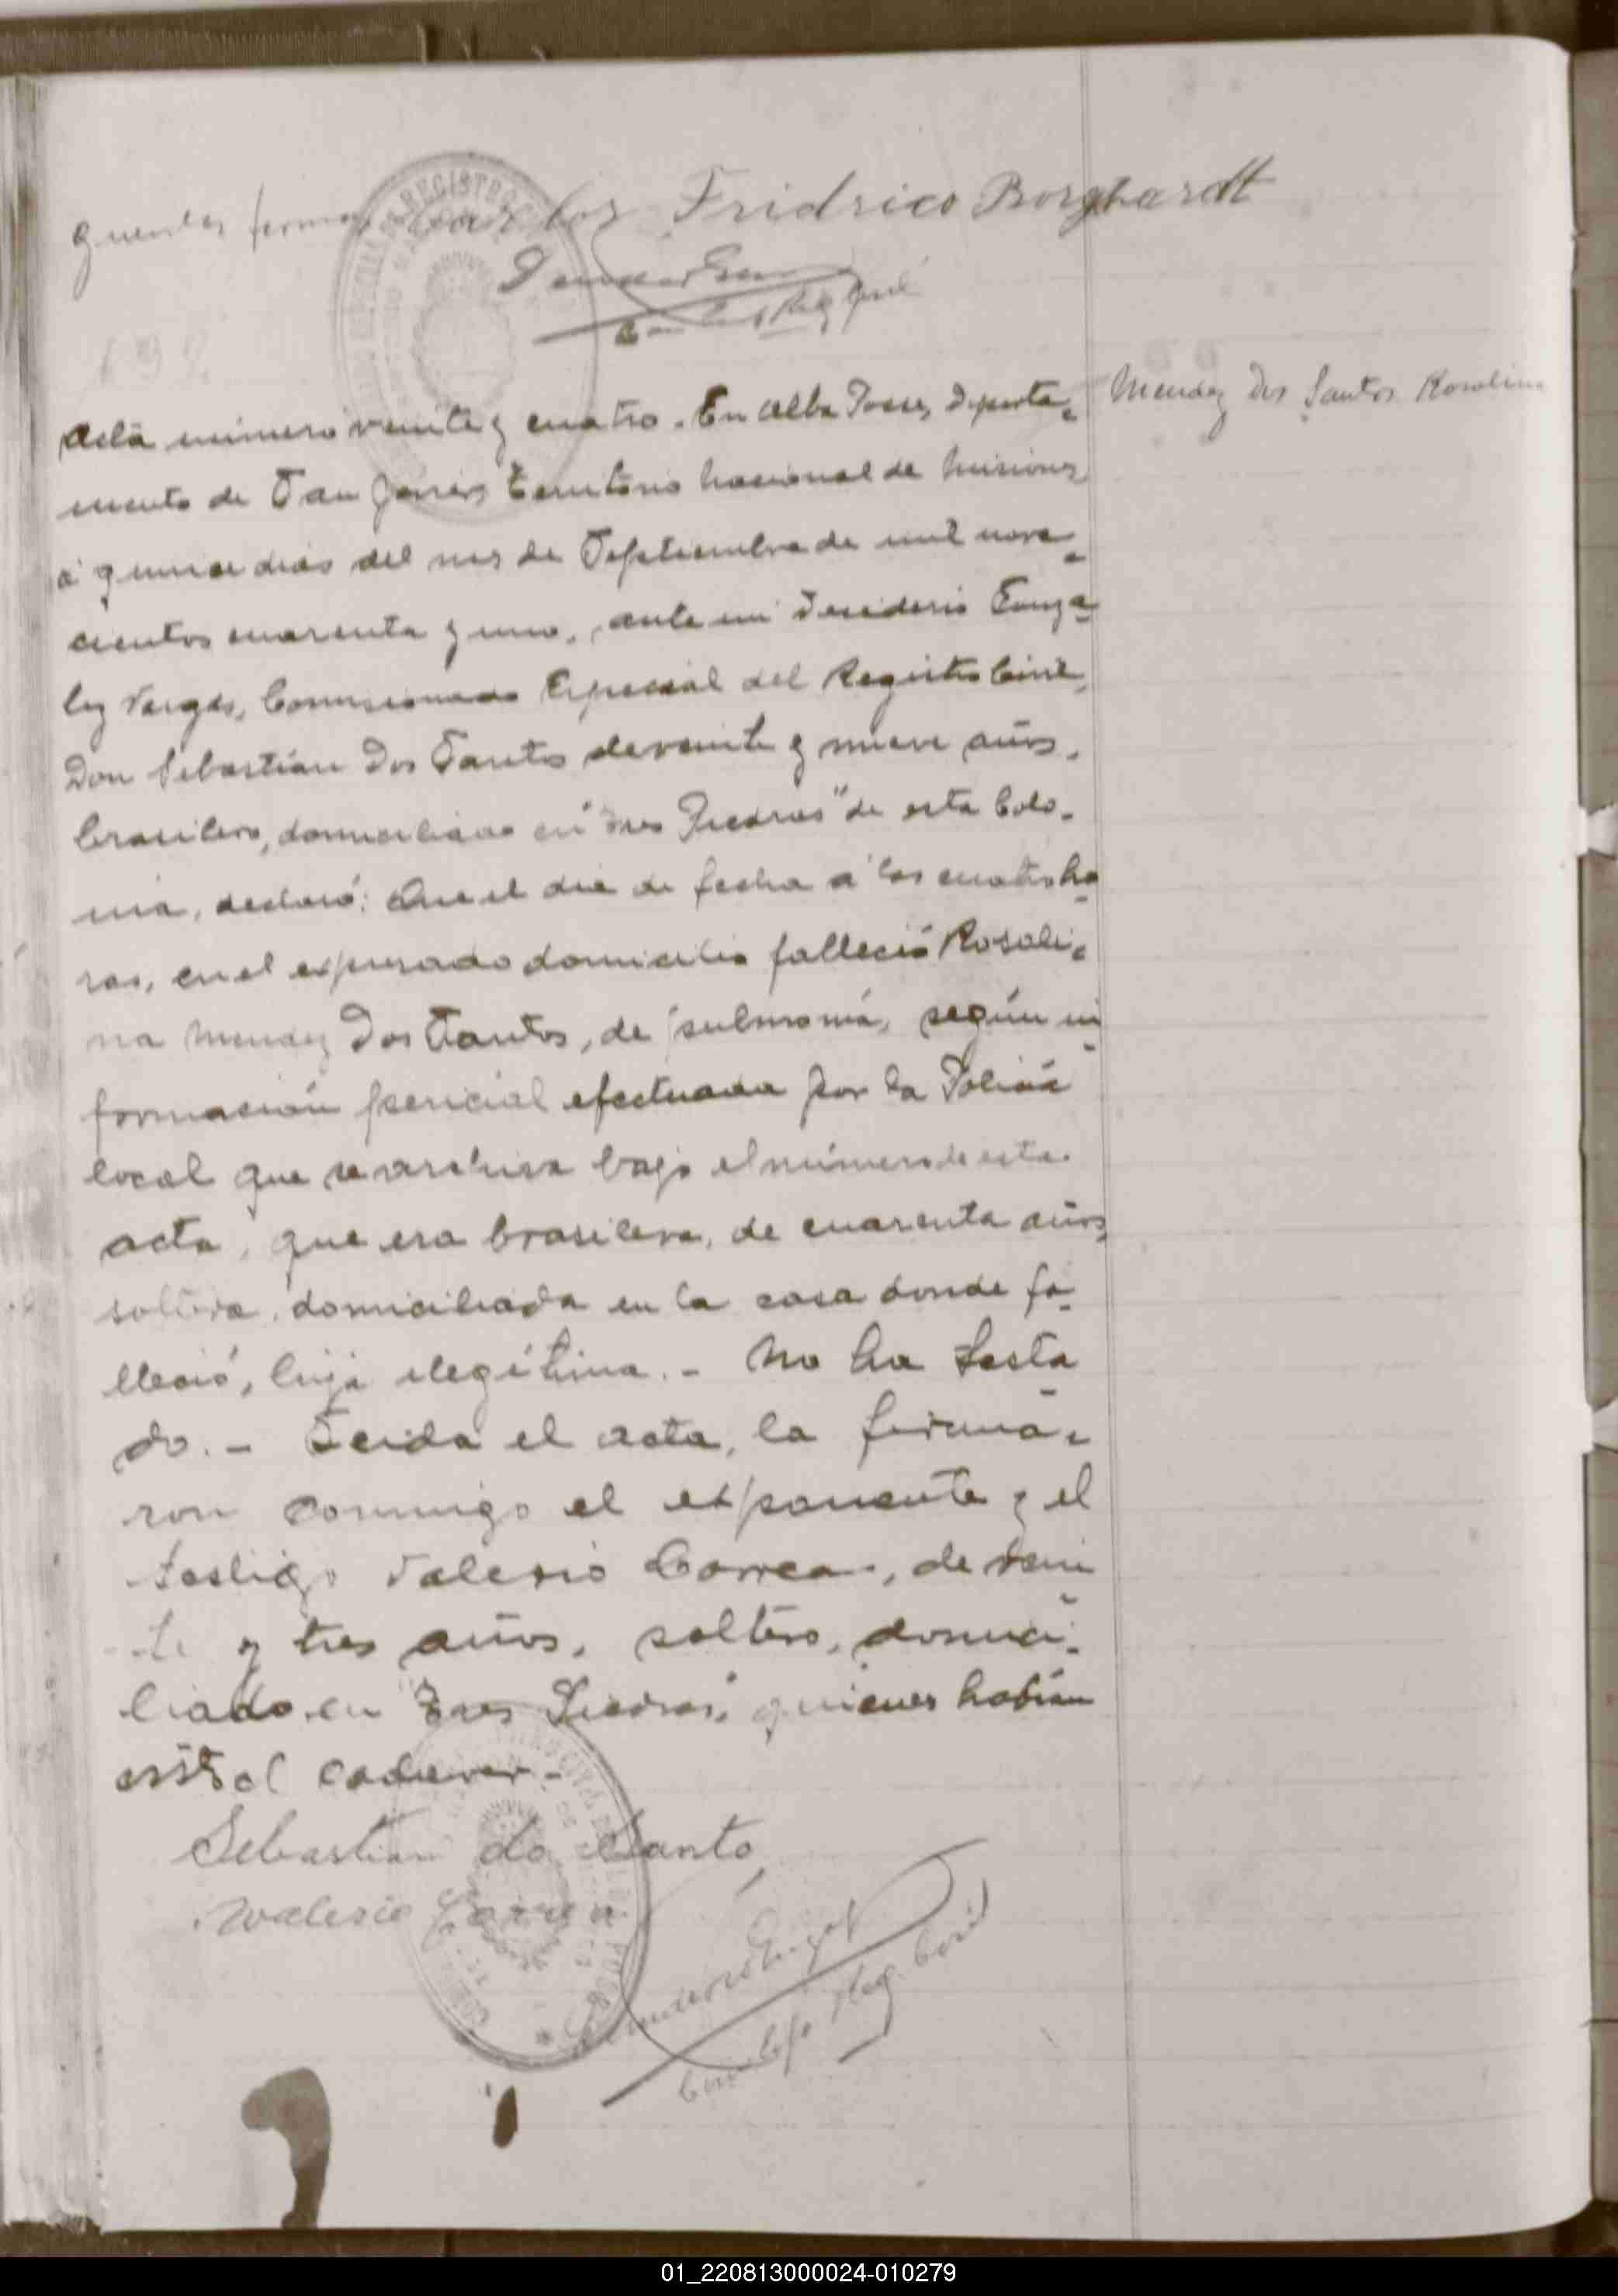 Carlos Fridrico Borghardt
Mendez Dos Santos Rosalina
Acta número veinte y cuatro. En Alba Posse, departa=
mento de San Javier, Territorio Nacional de Misiones
á quince dias del mes de Septiembre de mil nove=
cientos cuarenta y uno, ante mi Desiderio
Vargas, Comisionado Especial del Registro Civil,
Don Sebastián Dos Santos de veinte y nueve años,
brasilero, domiciliado en "Tres Piedras" de esta Colo-
nia, declaró: Que el dia de fecha á las cuatro ho=
ras, en el expresado domicilio falleció Rosali=
na Mendez Dos Santos, de pulmonía, según in=
formación pericial efectuada por la Policía
local que se archiva bajo el número de esta
acta, que era brasilera, de cuarenta años,
soltera, domiciliada en la casa donde fa=
lleció, hija ilegítima. - No ha testa=
do. - Leida el acta, la firma=
ron conmigo el exponente y el
testigo Valerio Correa, de vein=
te y tres años, soltero, domici=
liado en "Tres Piedras", quienes habían
visto el cadaver -
Sebastian do Santo
Walerio Correa
Reg. Civil
REGISTRO
01_220813000024-010279